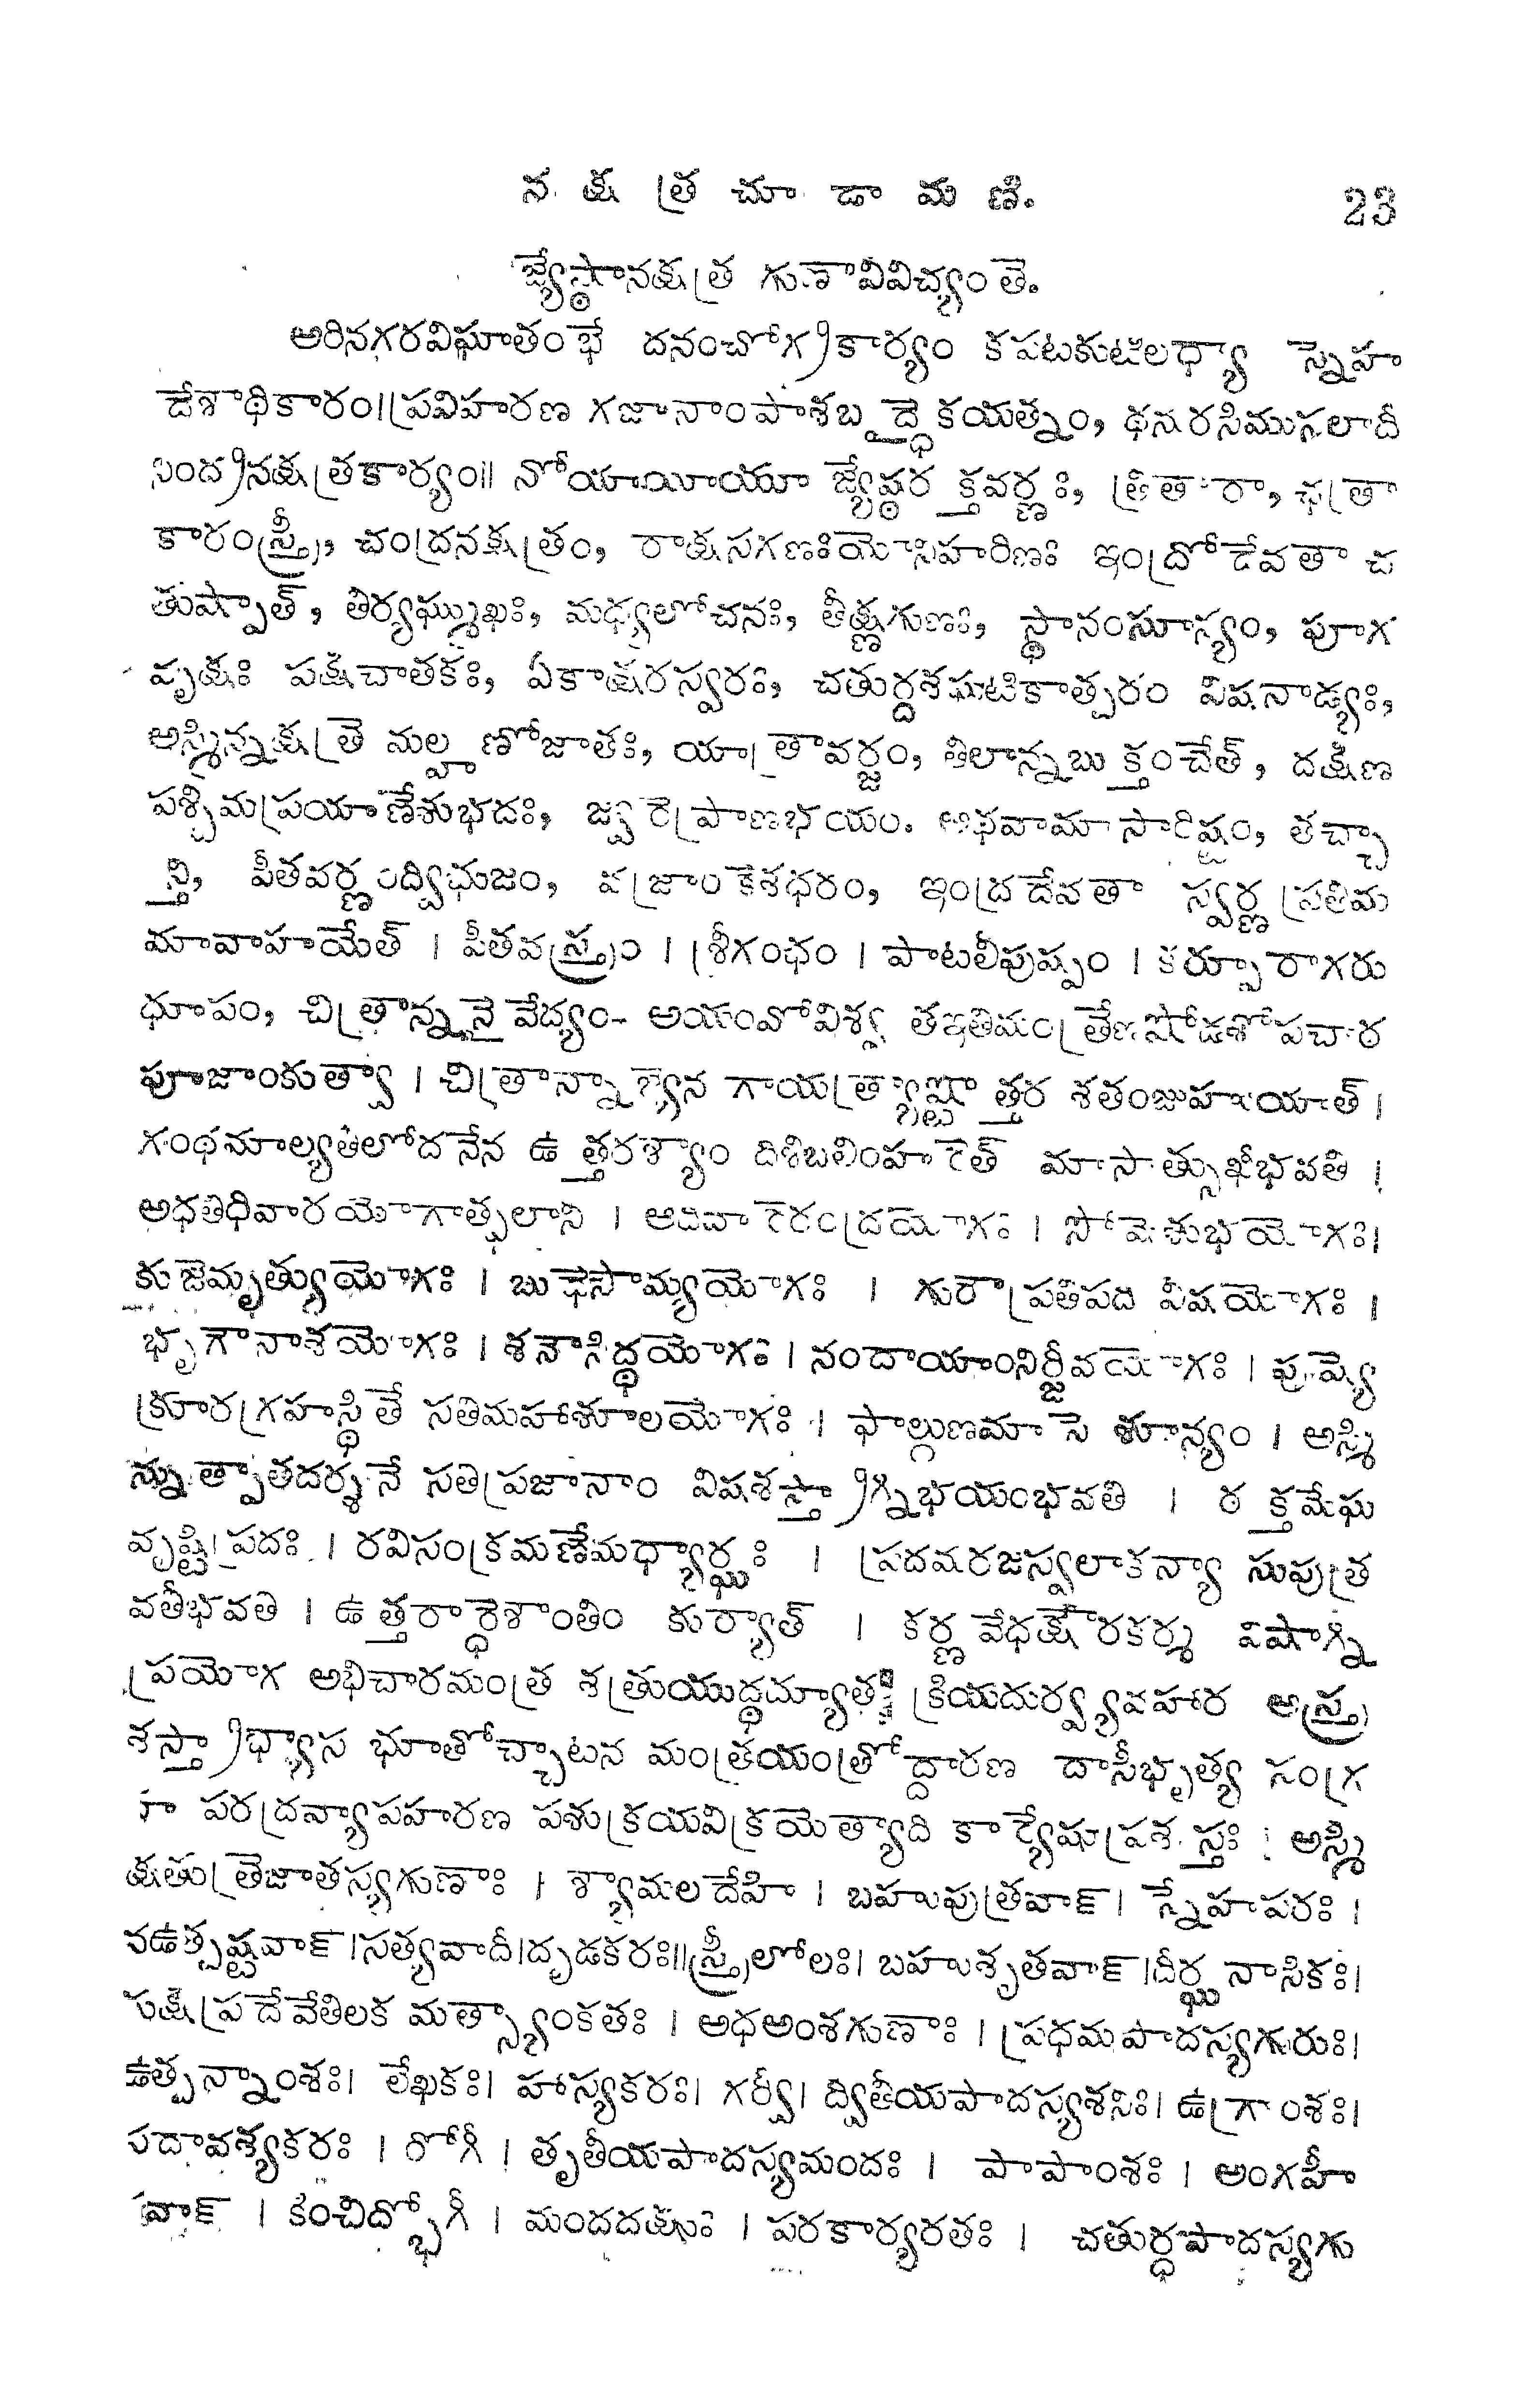 న క్ష త్ర చూ డా మ ణి. 23
జ్యేష్ఠానక్షత్ర గుణావివిచ్యంతె.
అరినగరవిఘాతంభే దనంచోగ్రకార్యం కపటకుటిలధ్యా స్నెహ
దేశాధికారం॥ప్రవిహారణ గజానాంపాశబద్ధైకయత్నం, ధనురసిముసలాదీ
నింద్రనక్షత్రకార్యం॥ నోయాయీయూ జ్యేష్ఠర క్తవర్ణః, త్రితారా, ఛత్రా
కారంస్త్రీ, చంద్రనక్షత్రం, రాక్షసగణఃయోనిహరిణః ఇంద్రోదేవతా చ
తుష్పాత్, తిర్యఘ్ముఖః, మధ్యలోచనః, తీక్ష్ణగుణః, స్థానంసూన్యం, పూగ
వృక్షః పక్షిచాతకః, ఏకాక్షరస్వరః, చతుర్దశఘటికాత్పరం విషనాడ్యః,
అస్మిన్నక్షత్రె నుల్హ ణోజాతః, యాత్రావర్జం, తిలాన్నబు క్తంచేత్, దక్షిణ
పశ్చిమప్రయాణేశుభదః, జ్వరెప్రాణభయం. అధవామాసారిష్టం, తచ్ఛా
న్తి, పీతవర్ణంద్విభుజం, వజ్రాంకుశధరం, ఇంద్రదేవతా స్వర్ణ ప్రతిమ
మావాహయేత్ । పీతవస్త్రం । శ్రీగంధం । పాటలీపుష్పం । కర్పూరాగరు
ధూపం, చిత్రాన్ననై వేద్యం- అయంవోవిశ్వ తఇతిమంత్రేణషోడశోపచార
పూజాంకుత్వా । చిత్రాన్నాజ్యేన గాయత్ర్యాష్టో త్తర శతంజుహుయాత్ ।
గంధమాల్యతిలోదనేన ఉ త్తరశ్యాం దిశిబలింహరెత్ మాసాత్సుఖీభవతి ।
అధతిధివారయోగాత్ఫలాని । ఆదివారెరంద్రయోగః । సోమెశుభయోగః।
కుజెమృత్యుయోగః । బుధెసౌమ్యయోగః । గురౌప్రతిపది విషయోగః ।
భృగౌనాశయోగః । శనౌసిద్ధయోగః । నందాయాంనిర్జీవయోగః । పుష్యె
క్రూరగ్రహస్థితే సతిమహాశూలయోగః । ఫాల్గుణమాసె శూన్యం । అస్మి
న్నుత్పాతదర్శనే సతిప్రజానాం విషశస్త్రాగ్నిభయంభవతి । ర క్తమేఘ
వృష్టిప్రదః । రవిసంక్రమణేమధ్యార్ఘః । ప్రదమరజస్వలాకన్యా సుపుత్ర
వతీభవతి । ఉ త్తరార్ధెశాంతిం కుర్యాత్ । కర్ణ వేధక్షౌరకర్మ విషాగ్ని
ప్రయోగ అభిచారమంత్ర శత్రుయుద్ధద్యూతః క్రియదుర్వ్యవహార అస్త్ర
శస్త్రాభ్యాస భూతోచ్చాటన మంత్రయంత్రోద్దారణ దాసీభృత్య సంగ్ర
హ పరద్రవ్యాపహారణ పశుక్రయవిక్రయెత్యాది కార్యేషుప్రశస్తః । అస్మి
క్షతుత్రెజాతస్యగుణాః । శ్యామలదేహి । బహుపుత్రవాక్। స్నేహపరః ।
వఉత్పష్టవాక్।సత్యవాదీ।దృడకరః॥స్త్రీలోలః। బహుశృతవాక్।దీర్ఘనాసికః।
పక్షిప్రదేవేతిలక మత్స్యాంకతః । అధఅంశగుణాః । ప్రధమపాదస్యగురుః।
ఉత్పన్నాంశః। లేఖకః। హాస్యకరః। గర్వీ। ద్వితీయపాదస్యశనిః। ఉగ్రాంశః।
సదావశ్యకరః । రోగీ । తృతీయపాదస్యమందః । పాపాంశః । అంగహీ
వాక్ । కించిద్భోగీ । మందదక్షుః । పరకార్యరతః । చతుర్ధపాదస్యగు